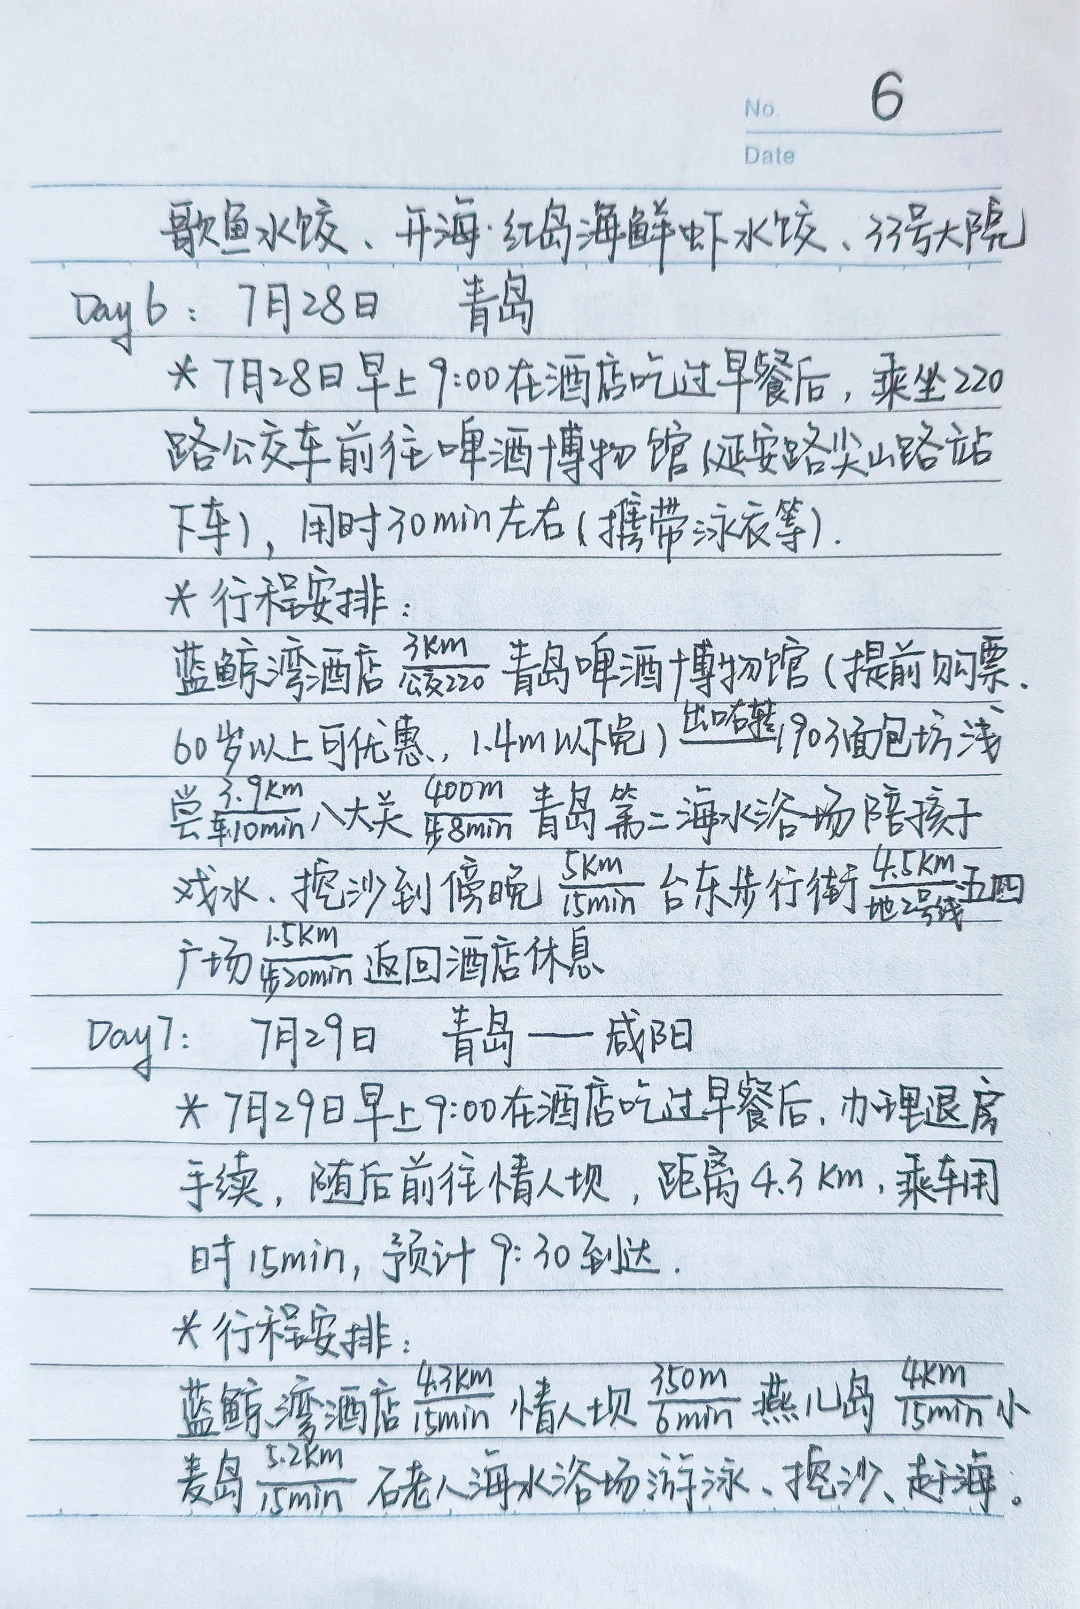 No. 6
Date
歌鱼水饺、开海·红岛海鲜虾水饺、33号大院
Day 6: 7月28日 青岛
*7月28日早上9:00在酒店吃过早餐后,乘坐220
路公交车前往啤酒博物馆(延安路尖山路站
下车),用时30min左右(携带泳衣等).
*行程安排:
蓝鲸湾酒店 3km/公交220 青岛啤酒博物馆(提前购票.
60岁以上可优惠,1.4m以下免) 出口右转 1903面包坊浅
尝 3.9km/车10min 八大关 400m/步8min 青岛第二海水浴场陪孩子
戏水、挖沙到傍晚 5km/15min 台东步行街 4.5km/地2号线 五四
广场 1.5km/步20min 返回酒店休息
Day7: 7月29日 青岛——咸阳
*7月29日早上9:00在酒店吃过早餐后,办理退房
手续,随后前往情人坝,距离4.3km,乘车用
时15min,预计9:30到达.
*行程安排:
蓝鲸湾酒店 4.3km/15min 情人坝 350m/6min 燕儿岛 4km/15min 小
麦岛 5.2km/15min 石老人海水浴场游泳、挖沙、赶海。